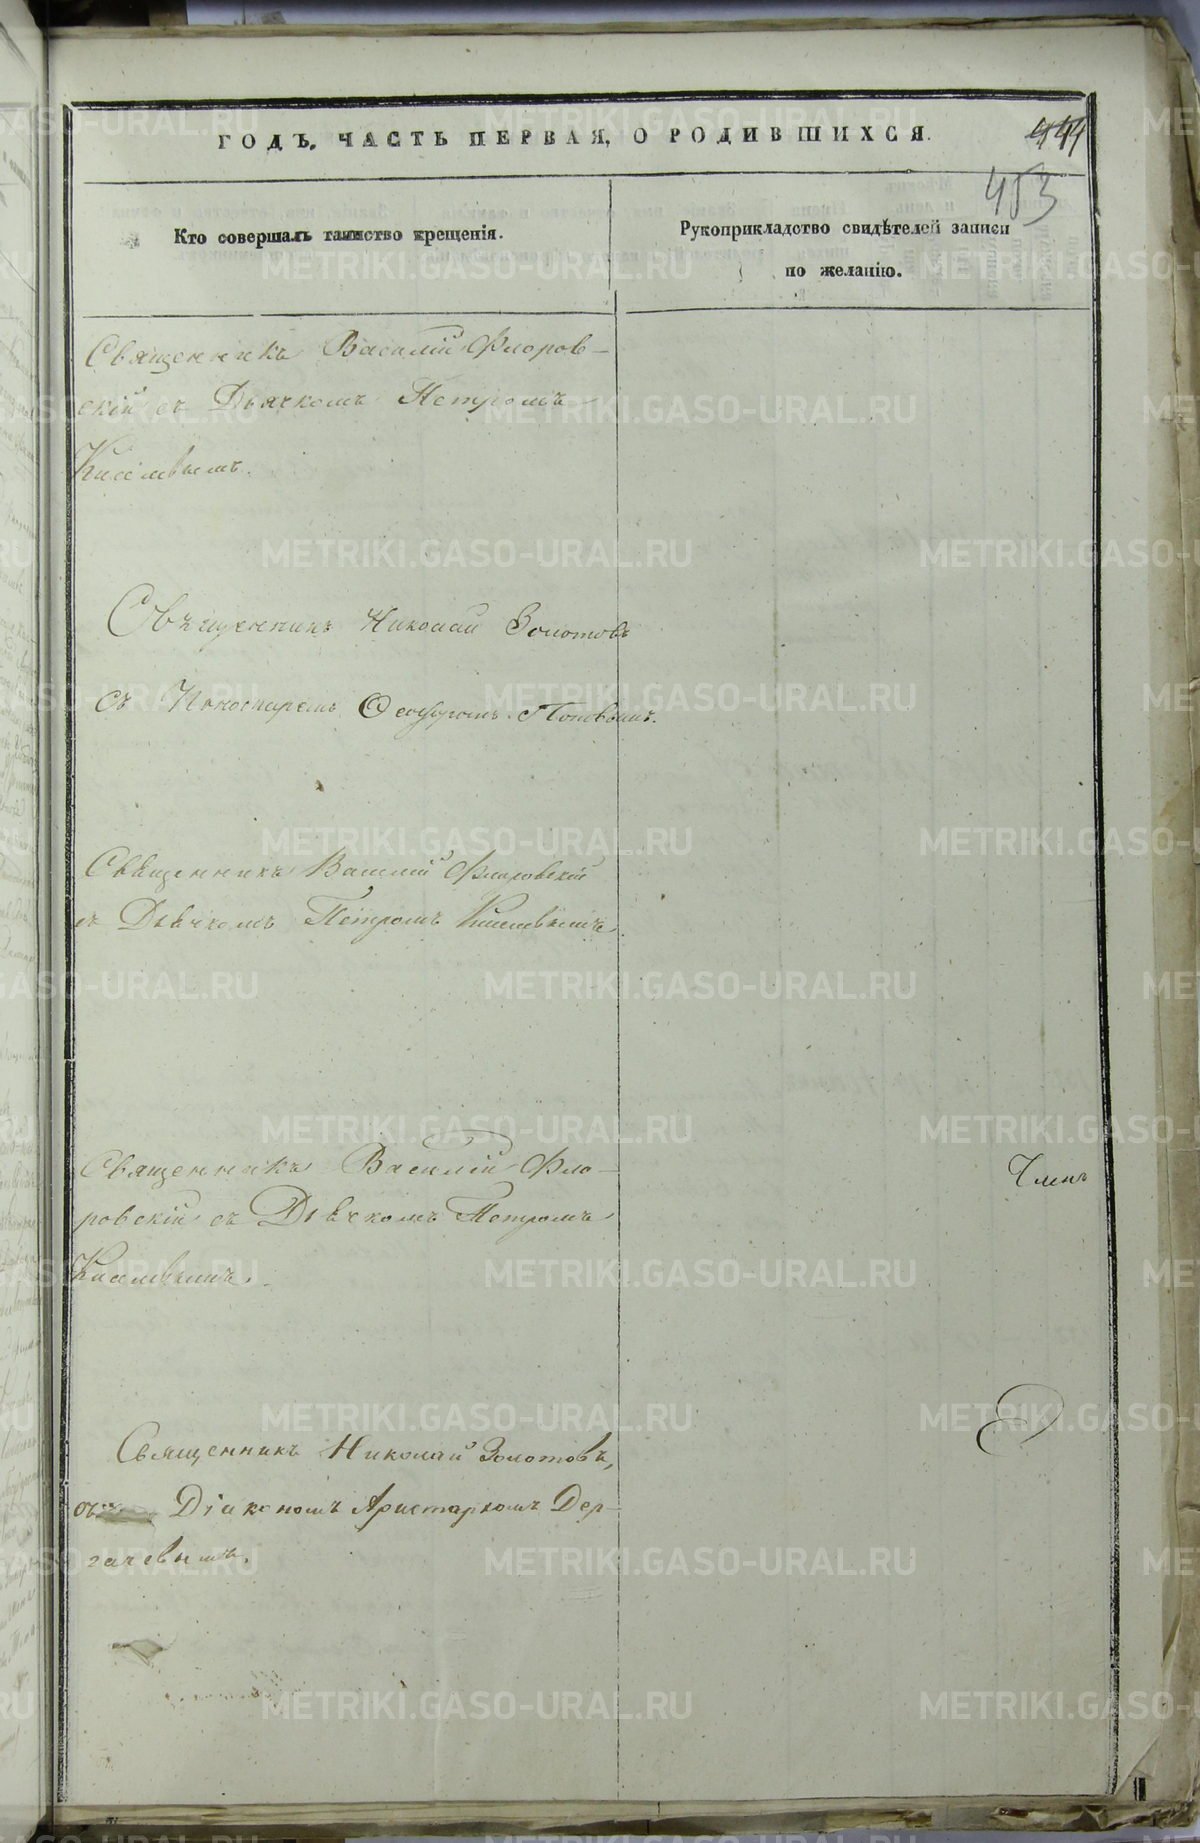 ГОДЪ, ЧАСТЬ ПЕРВАЯ, О РОДИВШИХСЯ.
444
453
Кто совершалъ таинство крещенія.
Рукоприкладство свидѣтелей записи
по желанію.
Священникъ Василій Флоров-
скій съ Дьячкомъ Петромъ
Киселвымъ.
Свѣщенникъ Николай Золотовъ
съ Понономаремъ Ѳеодоромъ Поповымъ.
Свѣщенникъ Василій Флоровскій
съ Дьячкомъ Петромъ Киселвымъ
Священникъ Василій Фло-
ровскій съ Дьячкомъ Петромъ
Киселвымъ.
Членъ
Священникъ Николай Золотовъ,
съ Діакономъ Аристархомъ Дер-
гачевымъ.
METRIKI.GASO-URAL.RU